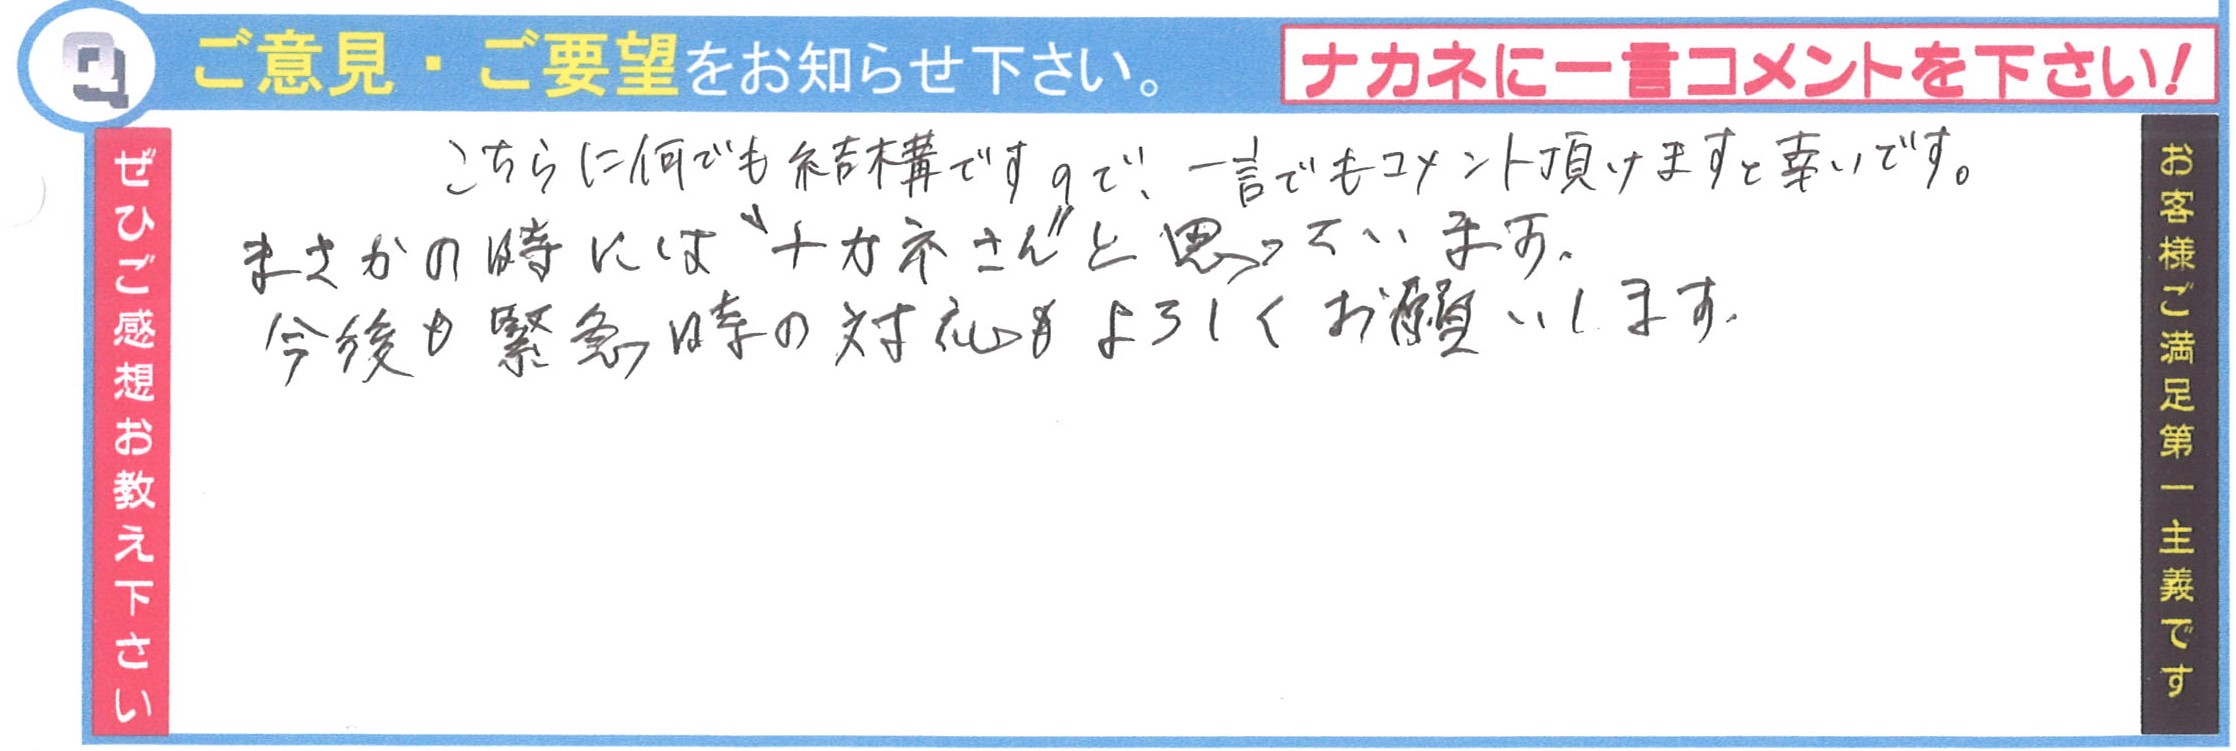 Q ご意見・ご要望をお知らせ下さい。
ナカネに一言コメントを下さい!
ぜひご感想お教え下さい
こちらに何でも結構ですので、一言でもコメント頂けますと幸いです。
まさかの時には〝ナカネさん〟と思っています。
今後も緊急時の対応もよろしくお願いします。
お客様ご満足第一主義です